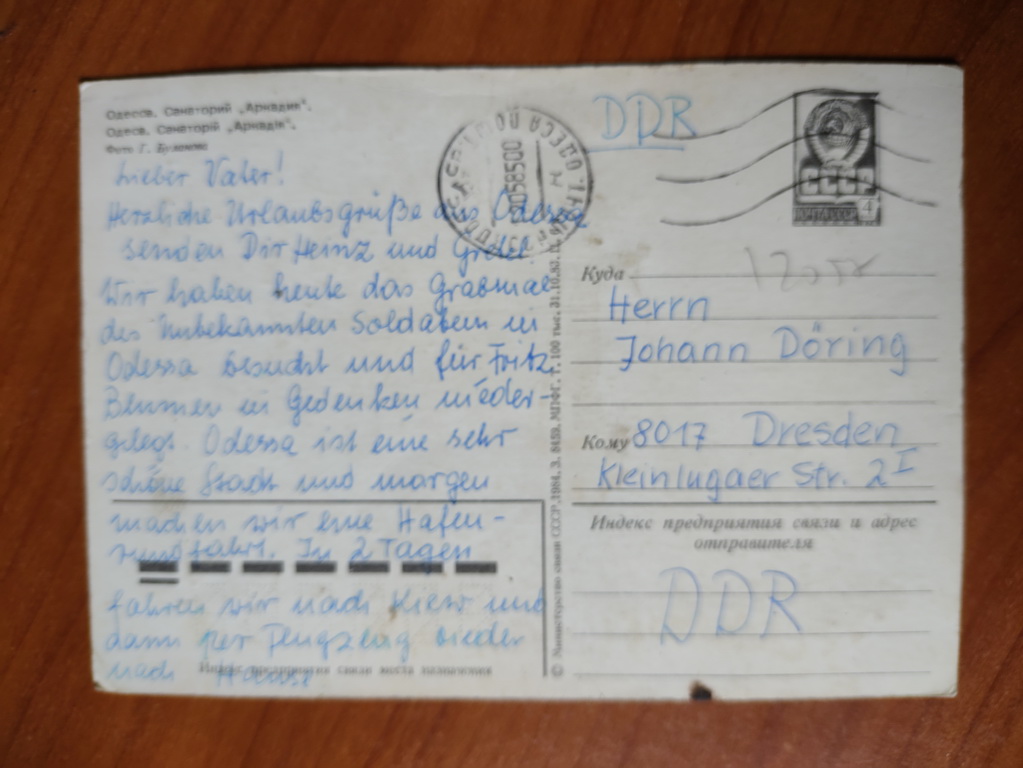 Одесса. Санаторий „Аркадия“.
Одеса. Санаторій „Аркадія“.
Фото Г.
Lieber Vater!
Herzliche Urlaubsgrüße aus Odessa
senden Dir Heinz und Gretel.
Wir haben heute das Grabmal
des Unbekannten Soldaten in
Odessa besucht und für Fritz
Blumen in Gedenken nieder-
gelegt. Odessa ist eine sehr
schöne Stadt und morgen
machen wir eine Hafen-
rundfahrt. In 2 Tagen
fahren wir nach Kiew und
dann per Flugzeug wieder
nach Hause
Индекс предприятия связи места назначения
© Министерство связи СССР, 1984. З. 8459. МПФГ. Г. 100 тыс. 31.10.83.
ОДЕССА
DDR
ПОЧТА СССР
4
Куда
Herrn
Johann Döring
Кому 8017 Dresden
Kleinlugaer Str. 2 I
Индекс предприятия связи и адрес
отправителя
DDR